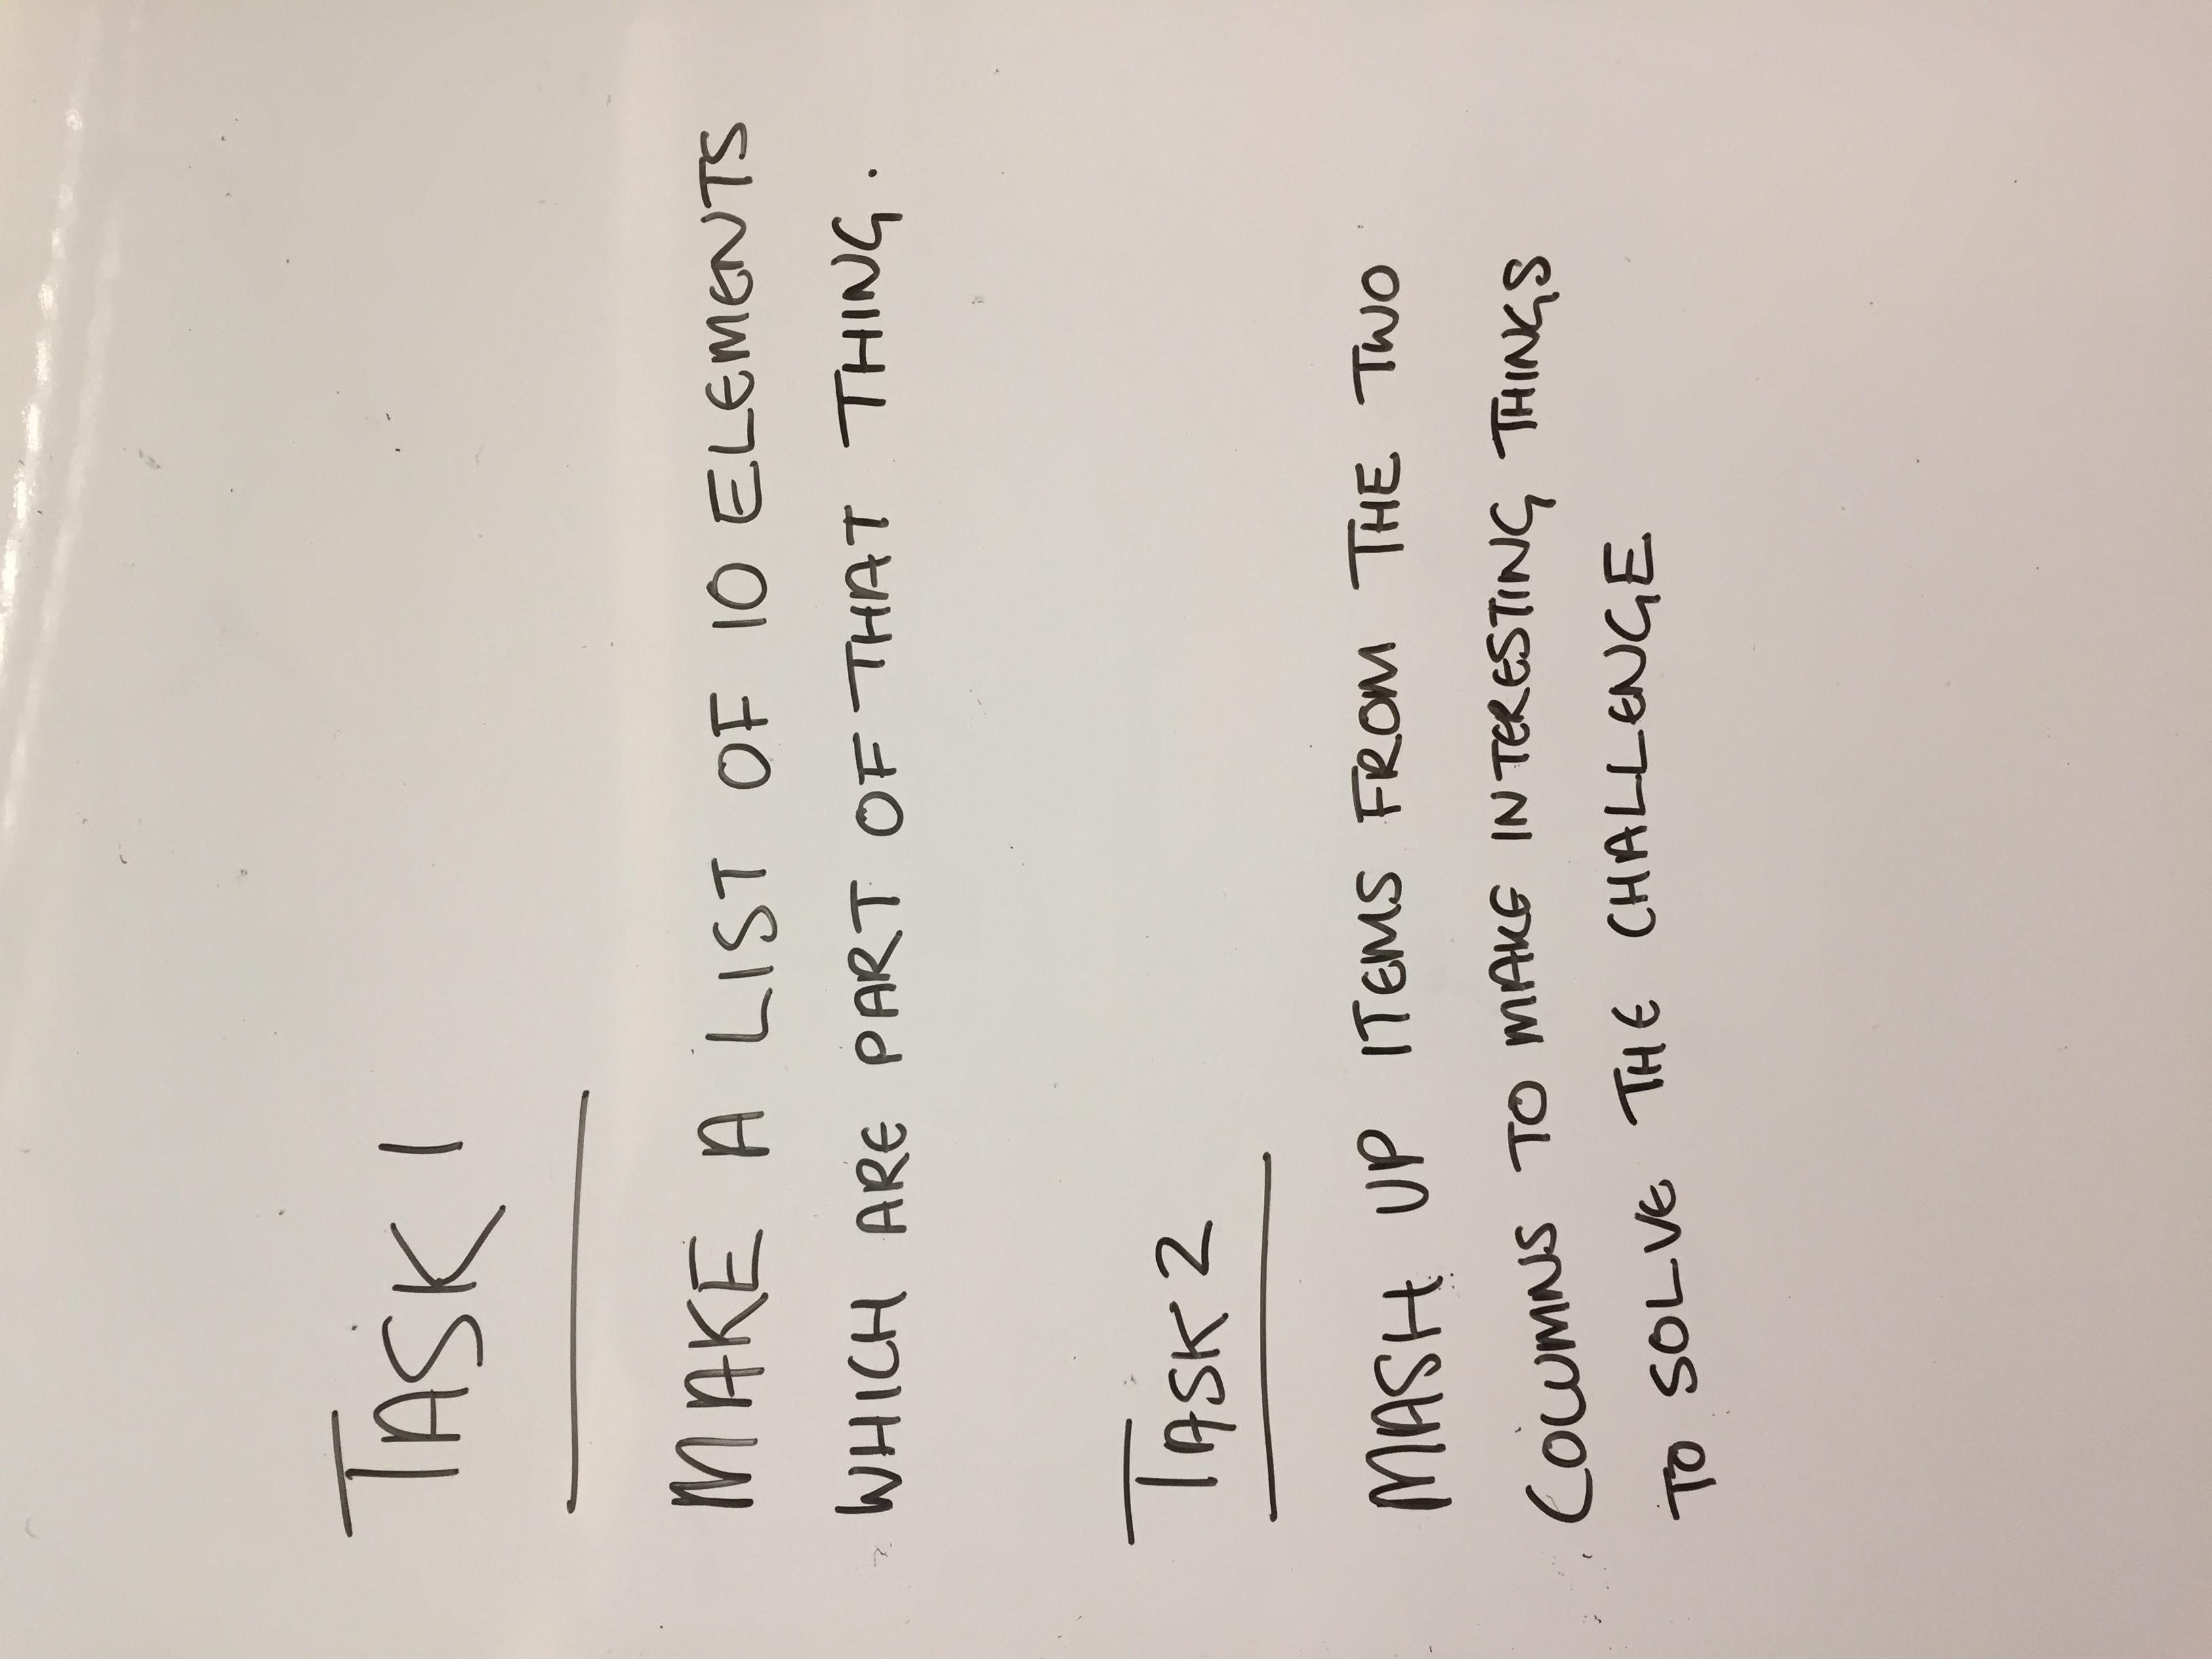 TASK 1
MAKE A LIST OF 10 ELEMENTS
WHICH ARE PART OF THAT THING.
TASK 2
MASH UP ITEMS FROM THE TWO
COLUMNS TO MAKE INTERESTING THINGS
TO SOLVE THE CHALLENGE